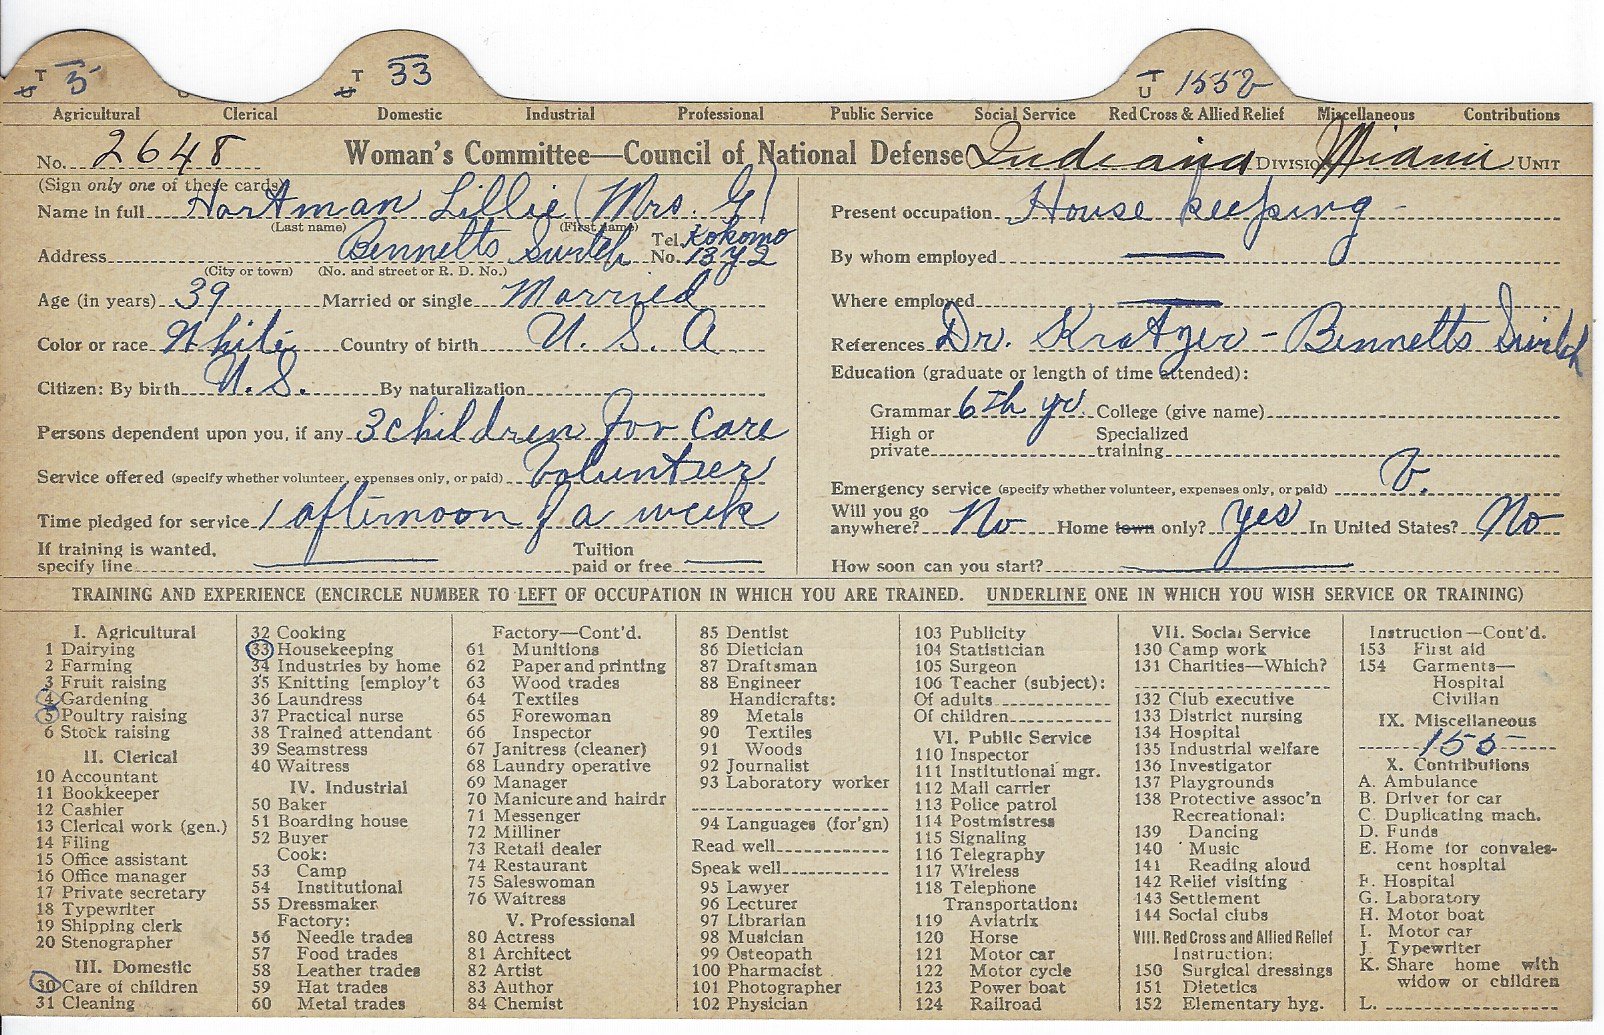 T U 5
T U 33
T U 155
Agricultural Clerical Domestic Industrial Professional Public Service Social Service Red Cross & Allied Relief Miscellaneous Contributions
No. 2648 Woman's Committee—Council of National Defense Indiana DIVISION Miami UNIT
(Sign only one of these cards)
Name in full Hartman Lillie (Mrs. G)
(Last name) (First name)
Address Bennetts Switch Tel. No. Kokomo 13 y 2
(City or town) (No. and street or R. D. No.)
Age (in years) 39 Married or single Married
Color or race White Country of birth U. S. A
Citizen: By birth U. S. By naturalization
Persons dependent upon you, if any 3 children for care
Service offered (specify whether volunteer, expenses only, or paid) Volunteer
Time pledged for service 1 afternoon of a week
If training is wanted, specify line Tuition paid or free
Present occupation House keeping
By whom employed
Where employed
References Dr. Kratzer - Bennetts Switch
Education (graduate or length of time attended):
Grammar 6th yr. College (give name)
High or private Specialized training
Emergency service (specify whether volunteer, expenses only, or paid) V.
Will you go anywhere? No Home town only? Yes In United States? No
How soon can you start?
TRAINING AND EXPERIENCE (ENCIRCLE NUMBER TO LEFT OF OCCUPATION IN WHICH YOU ARE TRAINED. UNDERLINE ONE IN WHICH YOU WISH SERVICE OR TRAINING)
I. Agricultural
1 Dairying
2 Farming
3 Fruit raising
4 Gardening
5 Poultry raising
6 Stock raising
II. Clerical
10 Accountant
11 Bookkeeper
12 Cashier
13 Clerical work (gen.)
14 Filing
15 Office assistant
16 Office manager
17 Private secretary
18 Typewriter
19 Shipping clerk
20 Stenographer
III. Domestic
30 Care of children
31 Cleaning
32 Cooking
33 Housekeeping
34 Industries by home
35 Knitting [employ't
36 Laundress
37 Practical nurse
38 Trained attendant
39 Seamstress
40 Waitress
IV. Industrial
50 Baker
51 Boarding house
52 Buyer
Cook:
53 Camp
54 Institutional
55 Dressmaker
Factory:
56 Needle trades
57 Food trades
58 Leather trades
59 Hat trades
60 Metal trades
Factory—Cont'd.
61 Munitions
62 Paper and printing
63 Wood trades
64 Textiles
65 Forewoman
66 Inspector
67 Janitress (cleaner)
68 Laundry operative
69 Manager
70 Manicure and hairdr
71 Messenger
72 Milliner
73 Retail dealer
74 Restaurant
75 Saleswoman
76 Waitress
V. Professional
80 Actress
81 Architect
82 Artist
83 Author
84 Chemist
85 Dentist
86 Dietician
87 Draftsman
88 Engineer
Handicrafts:
89 Metals
90 Textiles
91 Woods
92 Journalist
93 Laboratory worker
94 Languages (for'gn)
Read well
Speak well
95 Lawyer
96 Lecturer
97 Librarian
98 Musician
99 Osteopath
100 Pharmacist
101 Photographer
102 Physician
103 Publicity
104 Statistician
105 Surgeon
106 Teacher (subject):
Of adults
Of children
VI. Public Service
110 Inspector
111 Institutional mgr.
112 Mail carrier
113 Police patrol
114 Postmistress
115 Signaling
116 Telegraphy
117 Wireless
118 Telephone
Transportation:
119 Aviatrix
120 Horse
121 Motor car
122 Motor cycle
123 Power boat
124 Railroad
VII. Social Service
130 Camp work
131 Charities—Which?
132 Club executive
133 District nursing
134 Hospital
135 Industrial welfare
136 Investigator
137 Playgrounds
138 Protective assoc'n
Recreational:
139 Dancing
140 Music
141 Reading aloud
142 Relief visiting
143 Settlement
144 Social clubs
VIII. Red Cross and Allied Relief
Instruction:
150 Surgical dressings
151 Dietetics
152 Elementary hyg.
Instruction—Cont'd.
153 First aid
154 Garments—
Hospital
Civilian
IX. Miscellaneous
155
X. Contributions
A. Ambulance
B. Driver for car
C. Duplicating mach.
D. Funds
E. Home for convales-
cent hospital
F. Hospital
G. Laboratory
H. Motor boat
I. Motor car
J. Typewriter
K. Share home with
widow or children
L.